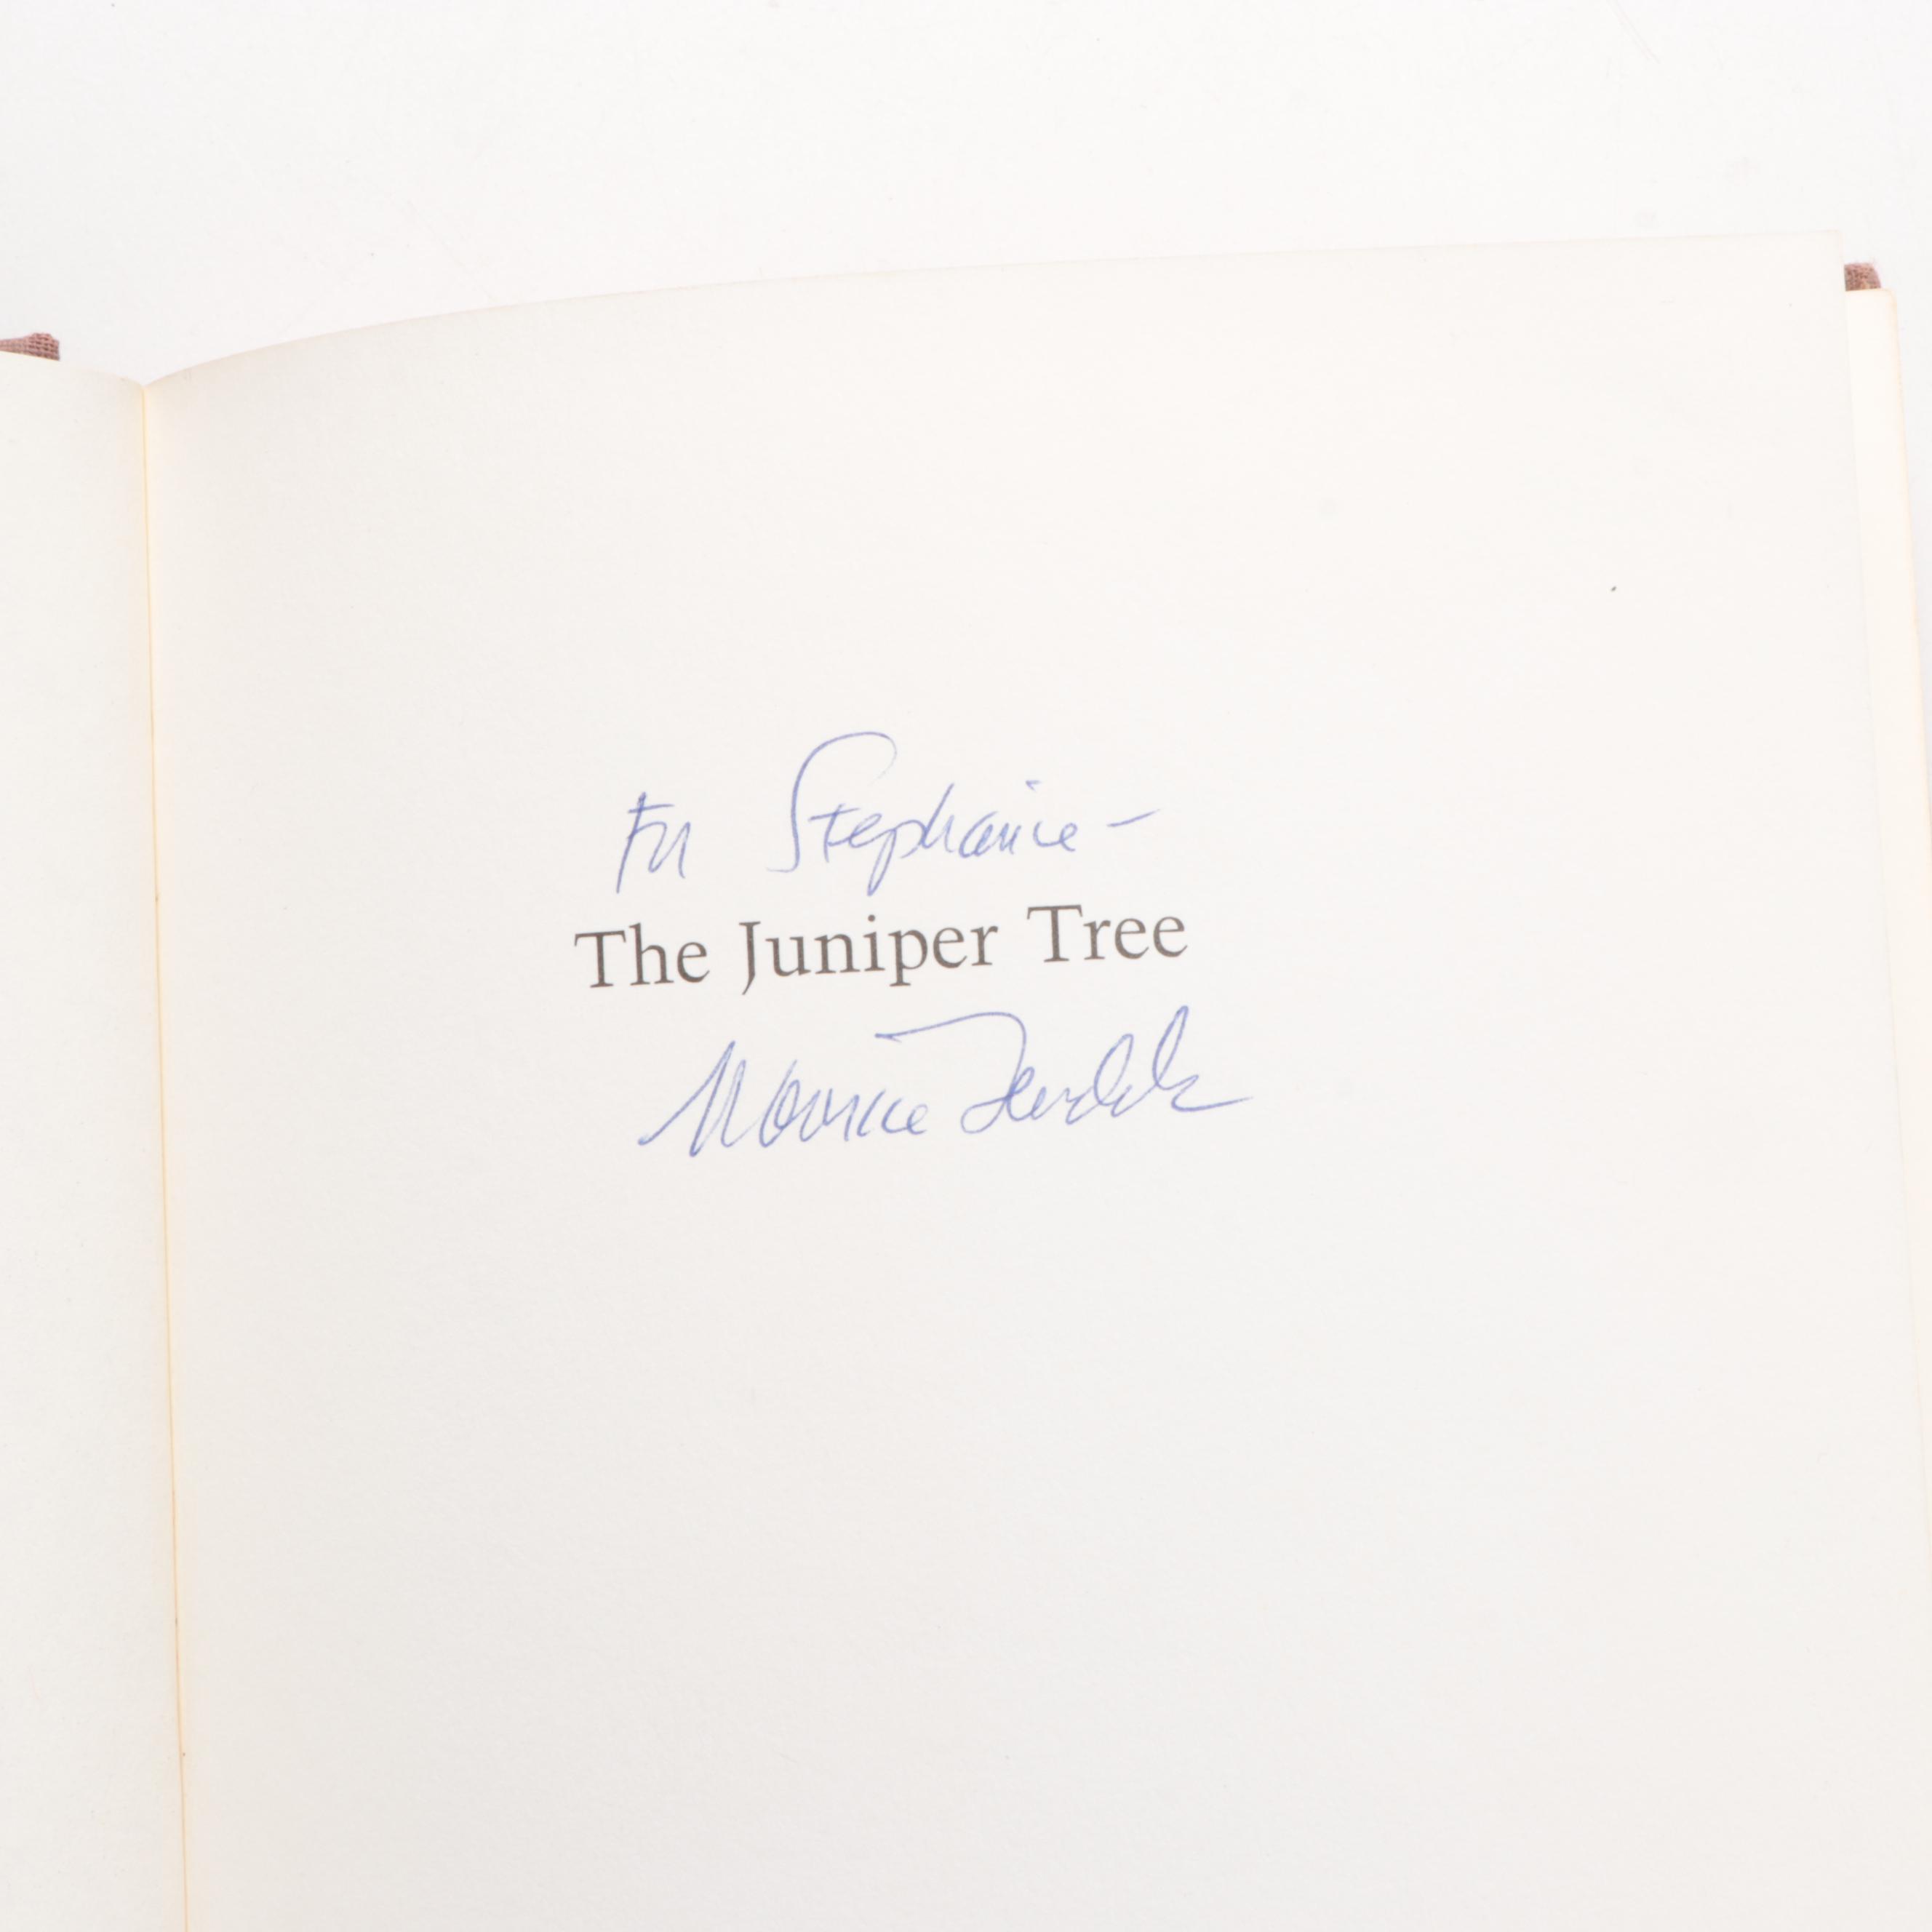 For Stephanie –
The Juniper Tree
Maurice Sendak